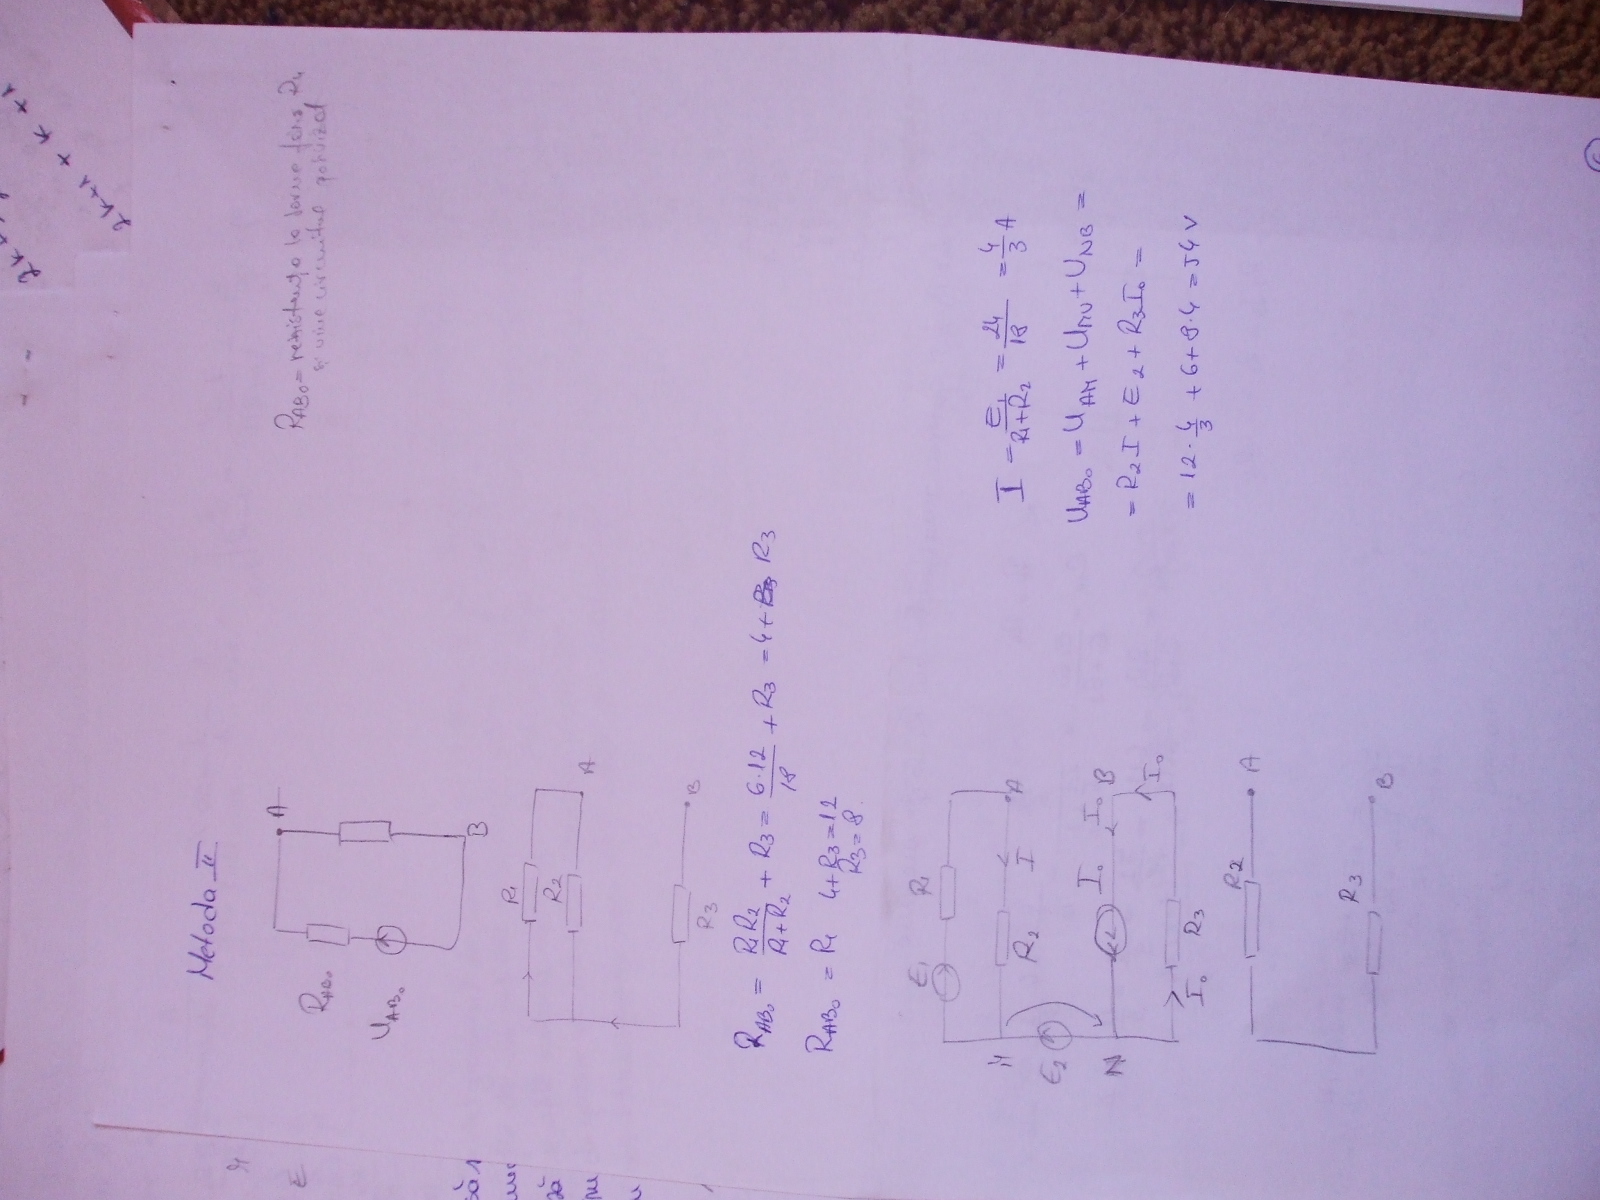 2k+1 + k + 1
Metoda II
A
R_AB₀
U_AB₀
B
R_AB₀ = rezistența la borne fără R₄
și circuitul
R₁
R₂
A
B
R₃
R_AB₀ = R₁R₂/(R₁+R₂) + R₃ = 6·12/18 + R₃ = 4+ R₃
R_AB₀ = R₄ 4+R₃=12
R₃=8.
E₁ R₁
M
R₂ I A
E₂
N I₀ I₀ B
I₀
I₀ R₃
I = E₁/(R₁+R₂) = 24/18 = 4/3 A
U_AB₀ = U_AM + U_MN + U_NB =
= R₂I + E₂ + R₃I₀ =
= 12·4/3 + 6+8·4 = 54 V
R₂ A
R₃
B